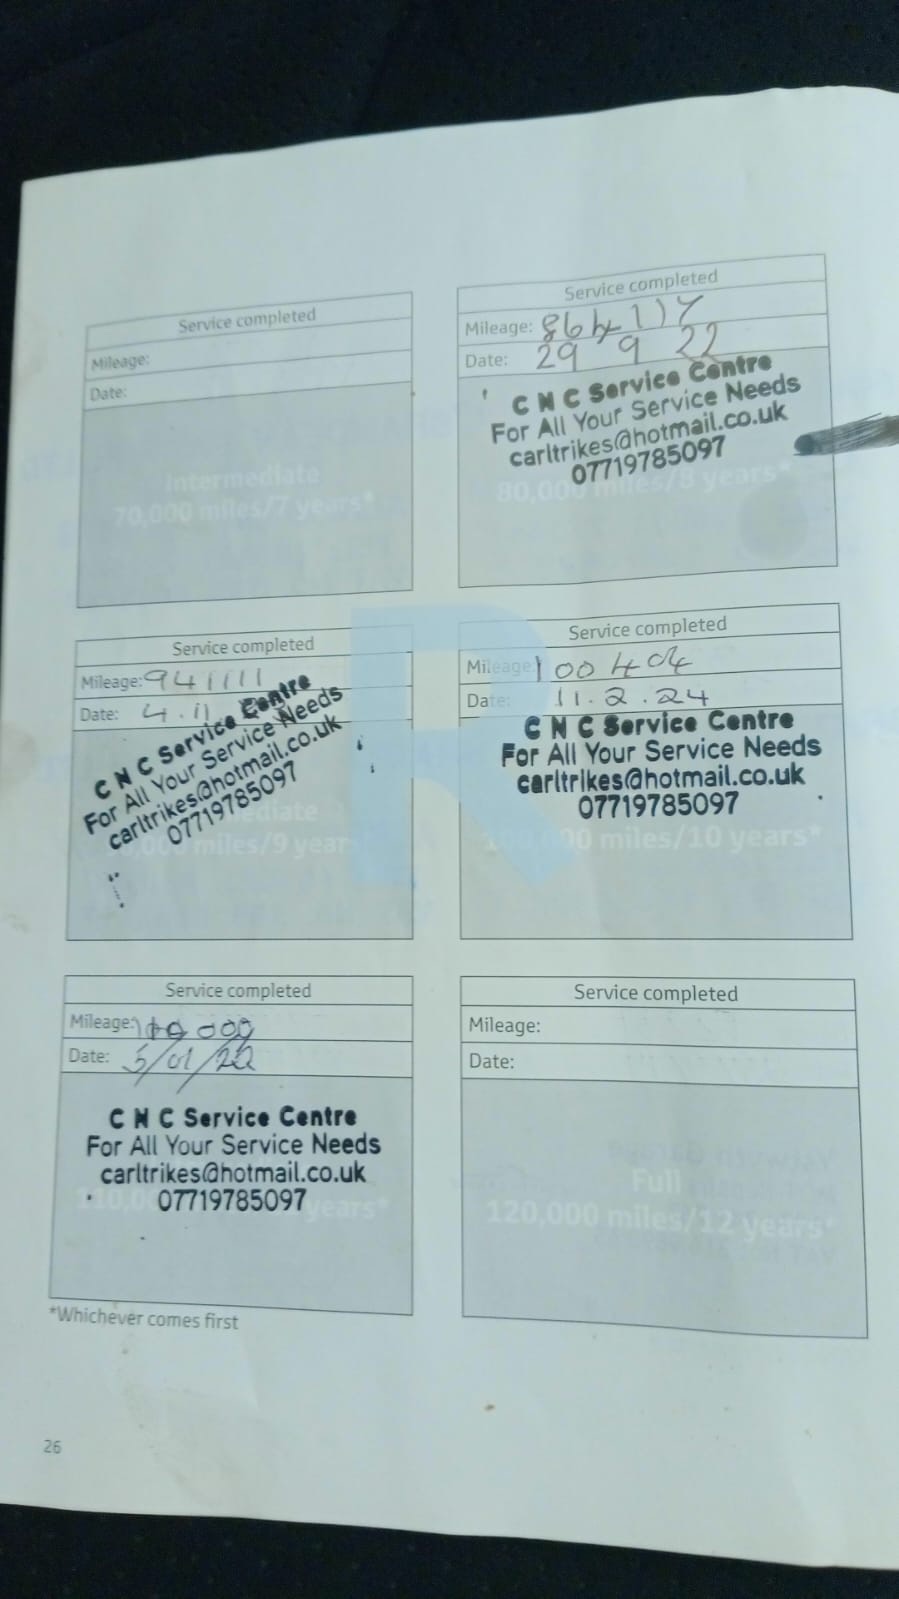 Service completed
Mileage:
Date:
Intermediate
70,000 miles/7 years*
Service completed
Mileage:
Date: 29 9 22
C N C Service Centre
For All Your Service Needs
carltrikes@hotmail.co.uk
07719785097
80,000 miles/8 years*
Service completed
Mileage: 941111
Date: 4.11
C N C Service Centre
For All Your Service Needs
carltrikes@hotmail.co.uk
07719785097
miles/9 year
Service completed
Mileage: 100404
Date: 11.2.24
C N C Service Centre
For All Your Service Needs
carltrikes@hotmail.co.uk
07719785097
miles/10 years*
Service completed
Mileage:
Date: 5/01/22
C N C Service Centre
For All Your Service Needs
carltrikes@hotmail.co.uk
07719785097
years*
Service completed
Mileage:
Date:
Full
120,000 miles/12 years*
*Whichever comes first
26
R